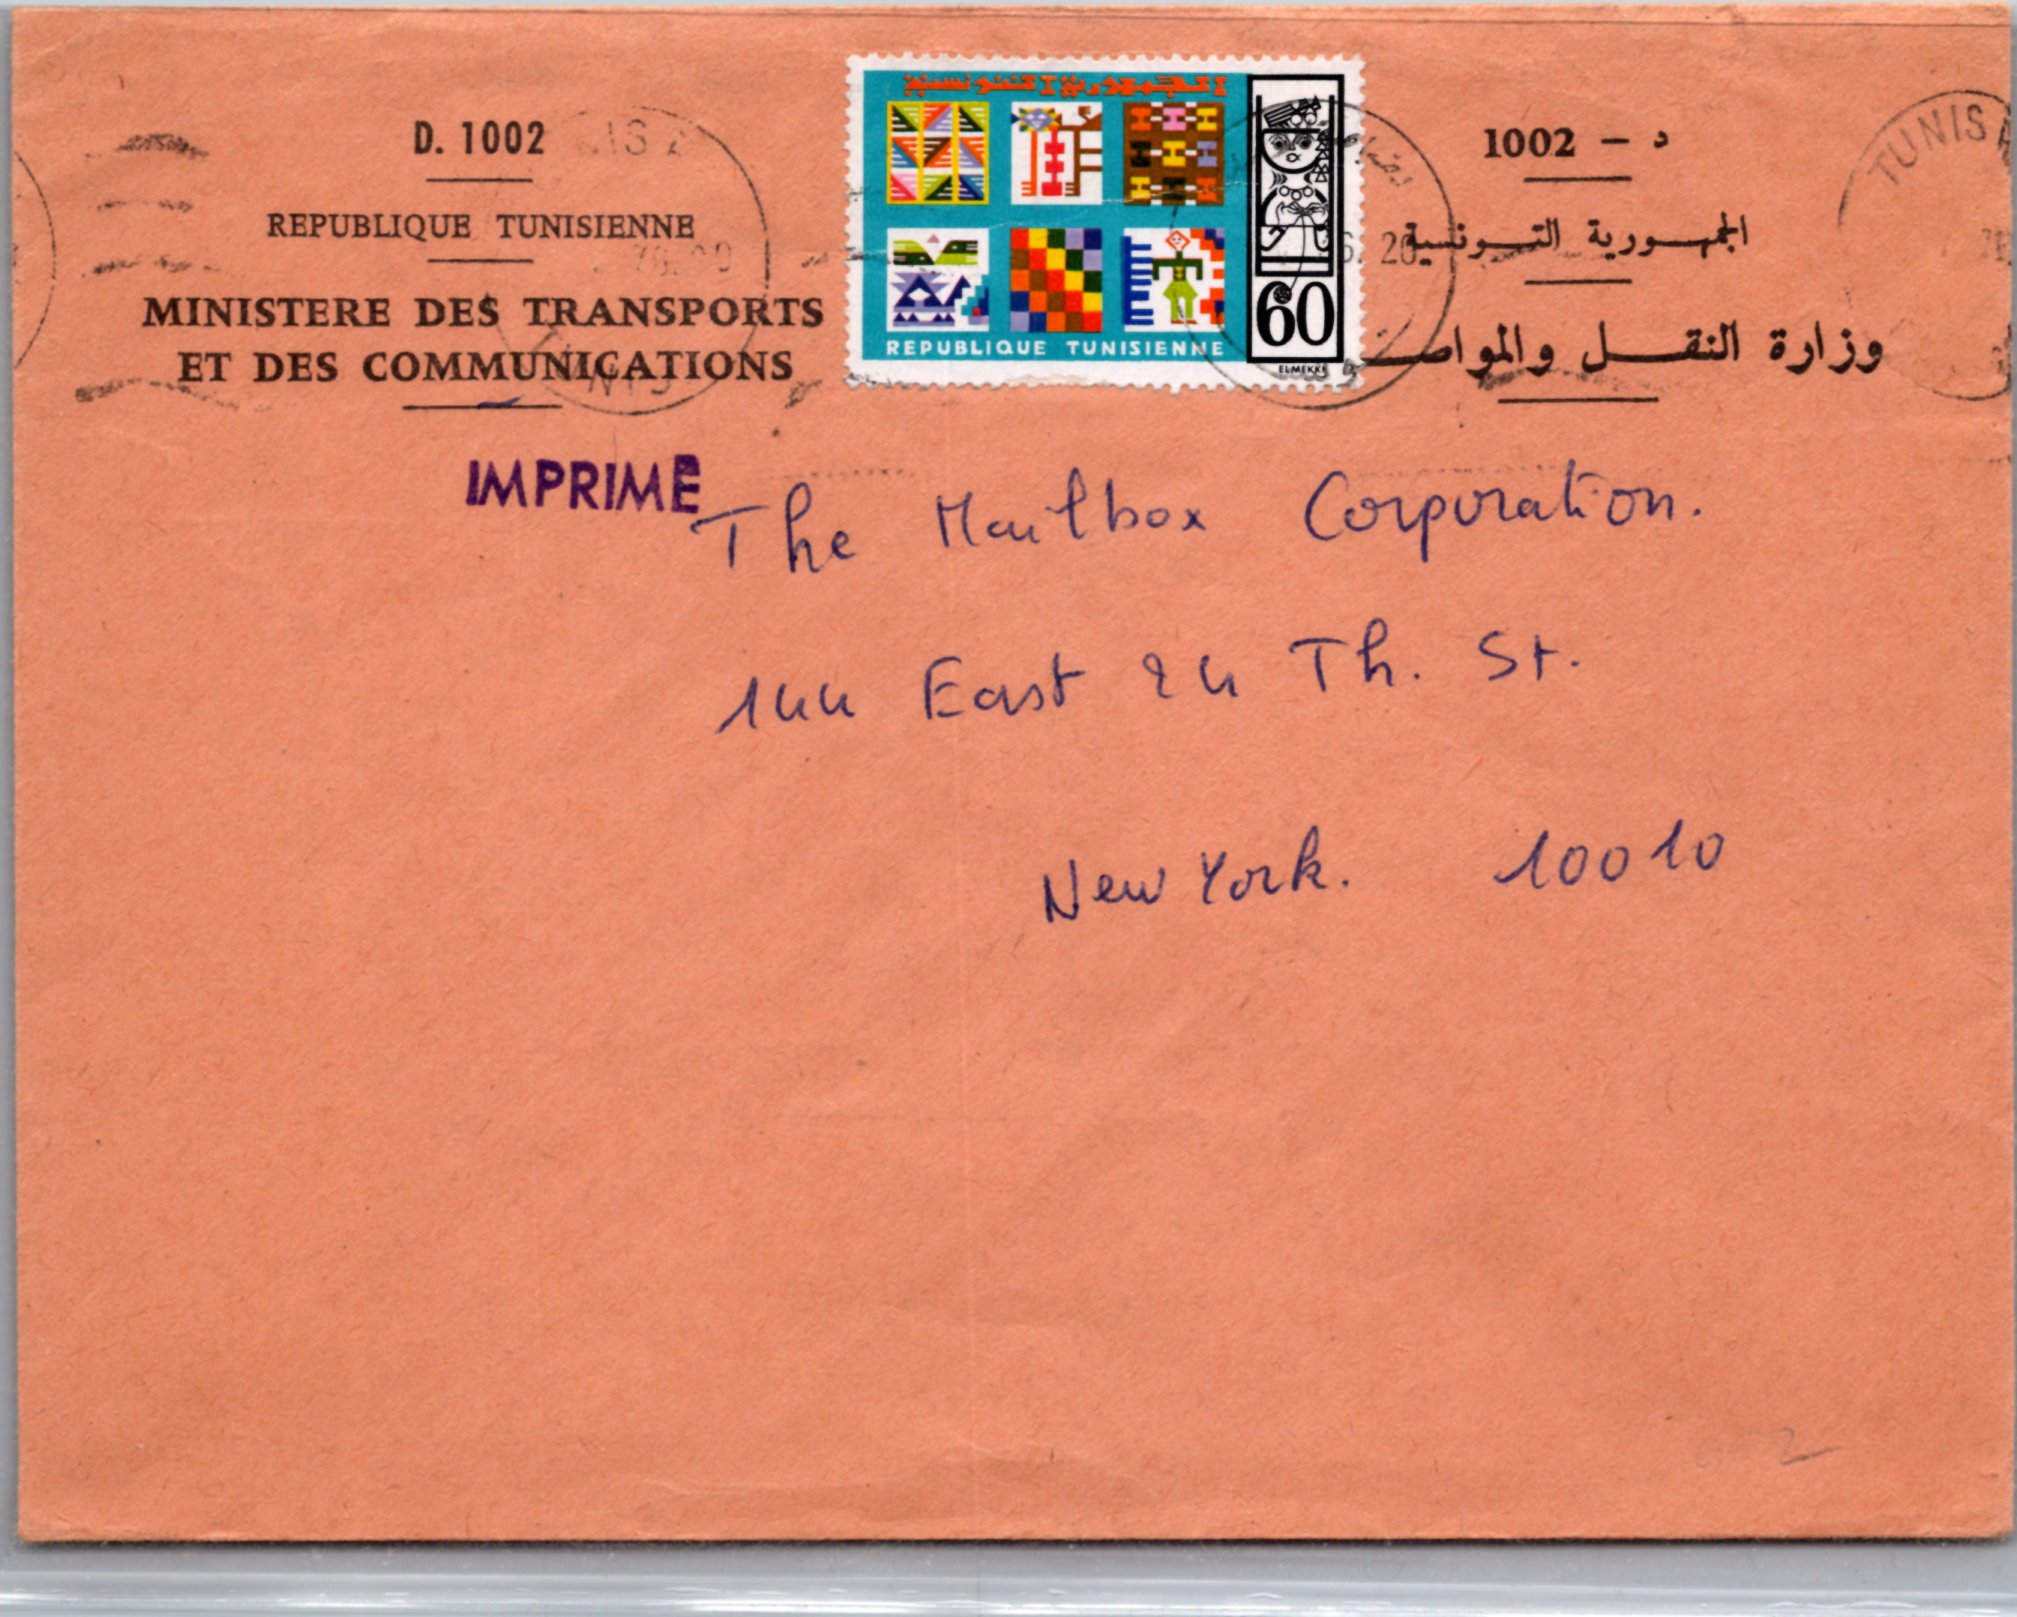 D. 1002
REPUBLIQUE TUNISIENNE
MINISTERE DES TRANSPORTS
ET DES COMMUNICATIONS
الجمهورية التونسية
60
REPUBLIQUE TUNISIENNE
ELMEKKI
1002 – د
الجمهورية التونسية
وزارة النقل والمواصـ
TUNIS
IMPRIME
The Mailbox Corporation.
144 East 24 Th. St.
New York. 10010